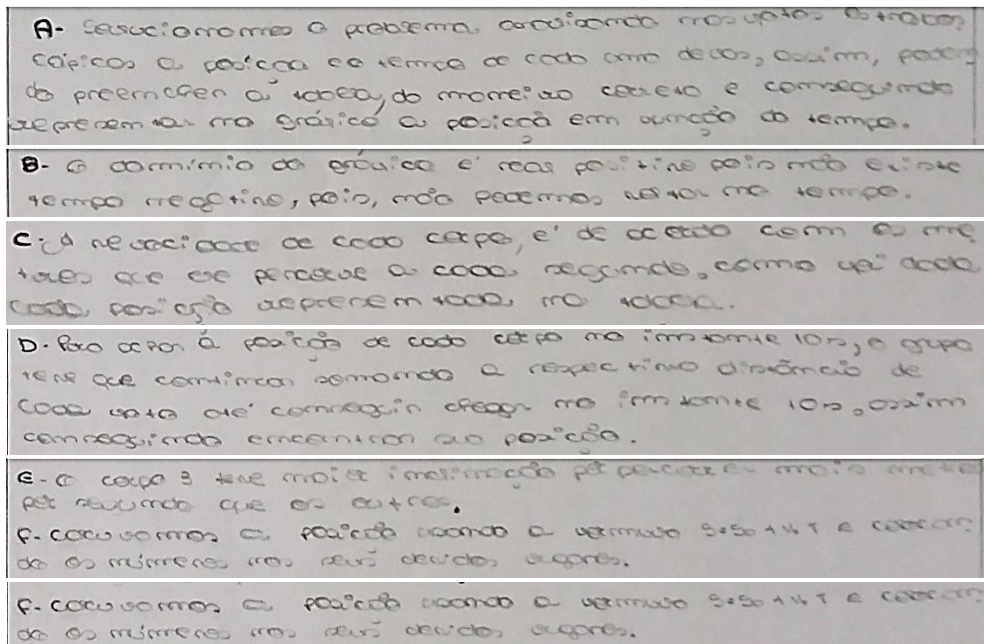 A- Solucionamos o problema analisando nas fotos estrobos
cópicas a posição e o tempo de cada uma delas, assim, poden
do preencher a tabela, da maneira correta e conseguindo
representar no gráfico a posição em função do tempo.
B- O domínio do gráfico é real positivo pois não existe
tempo negativo, pois, não podemos voltar no tempo.
C- A velocidade de cada corpo, é de acordo com os me
tros que ele percorre a cada segundo, como foi dada
cada posição representada na tabela.
D- Para depor a posição de cada corpo no instante 10s, o grupo
teve que continuar somando a respectiva distância de
cada foto até conseguir chegar no instante 10s, assim
conseguindo encontrar sua posição.
E- O corpo 3 teve maior inclinação por percorrer mais metros
por segundo que os outros.
F- Calculamos a posição usando a fórmula S=S0+V.T e colocan
do os números nos seus devidos lugares.
F- Calculamos a posição usando a fórmula S=S0+V.T e colocan
do os números nos seus devidos lugares.